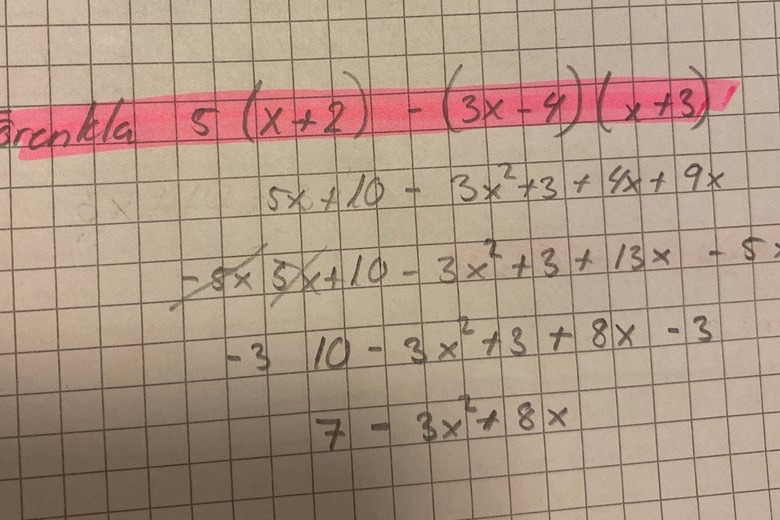 Förenkla 5 (x+2) - (3x-4)(x+3)
5x+10 - 3x²+3 + 4x + 9x
-5x 5x+10 - 3x²+3 + 13x - 5x
-3 10 - 3x²+3 + 8x - 3
7 - 3x²+ 8x